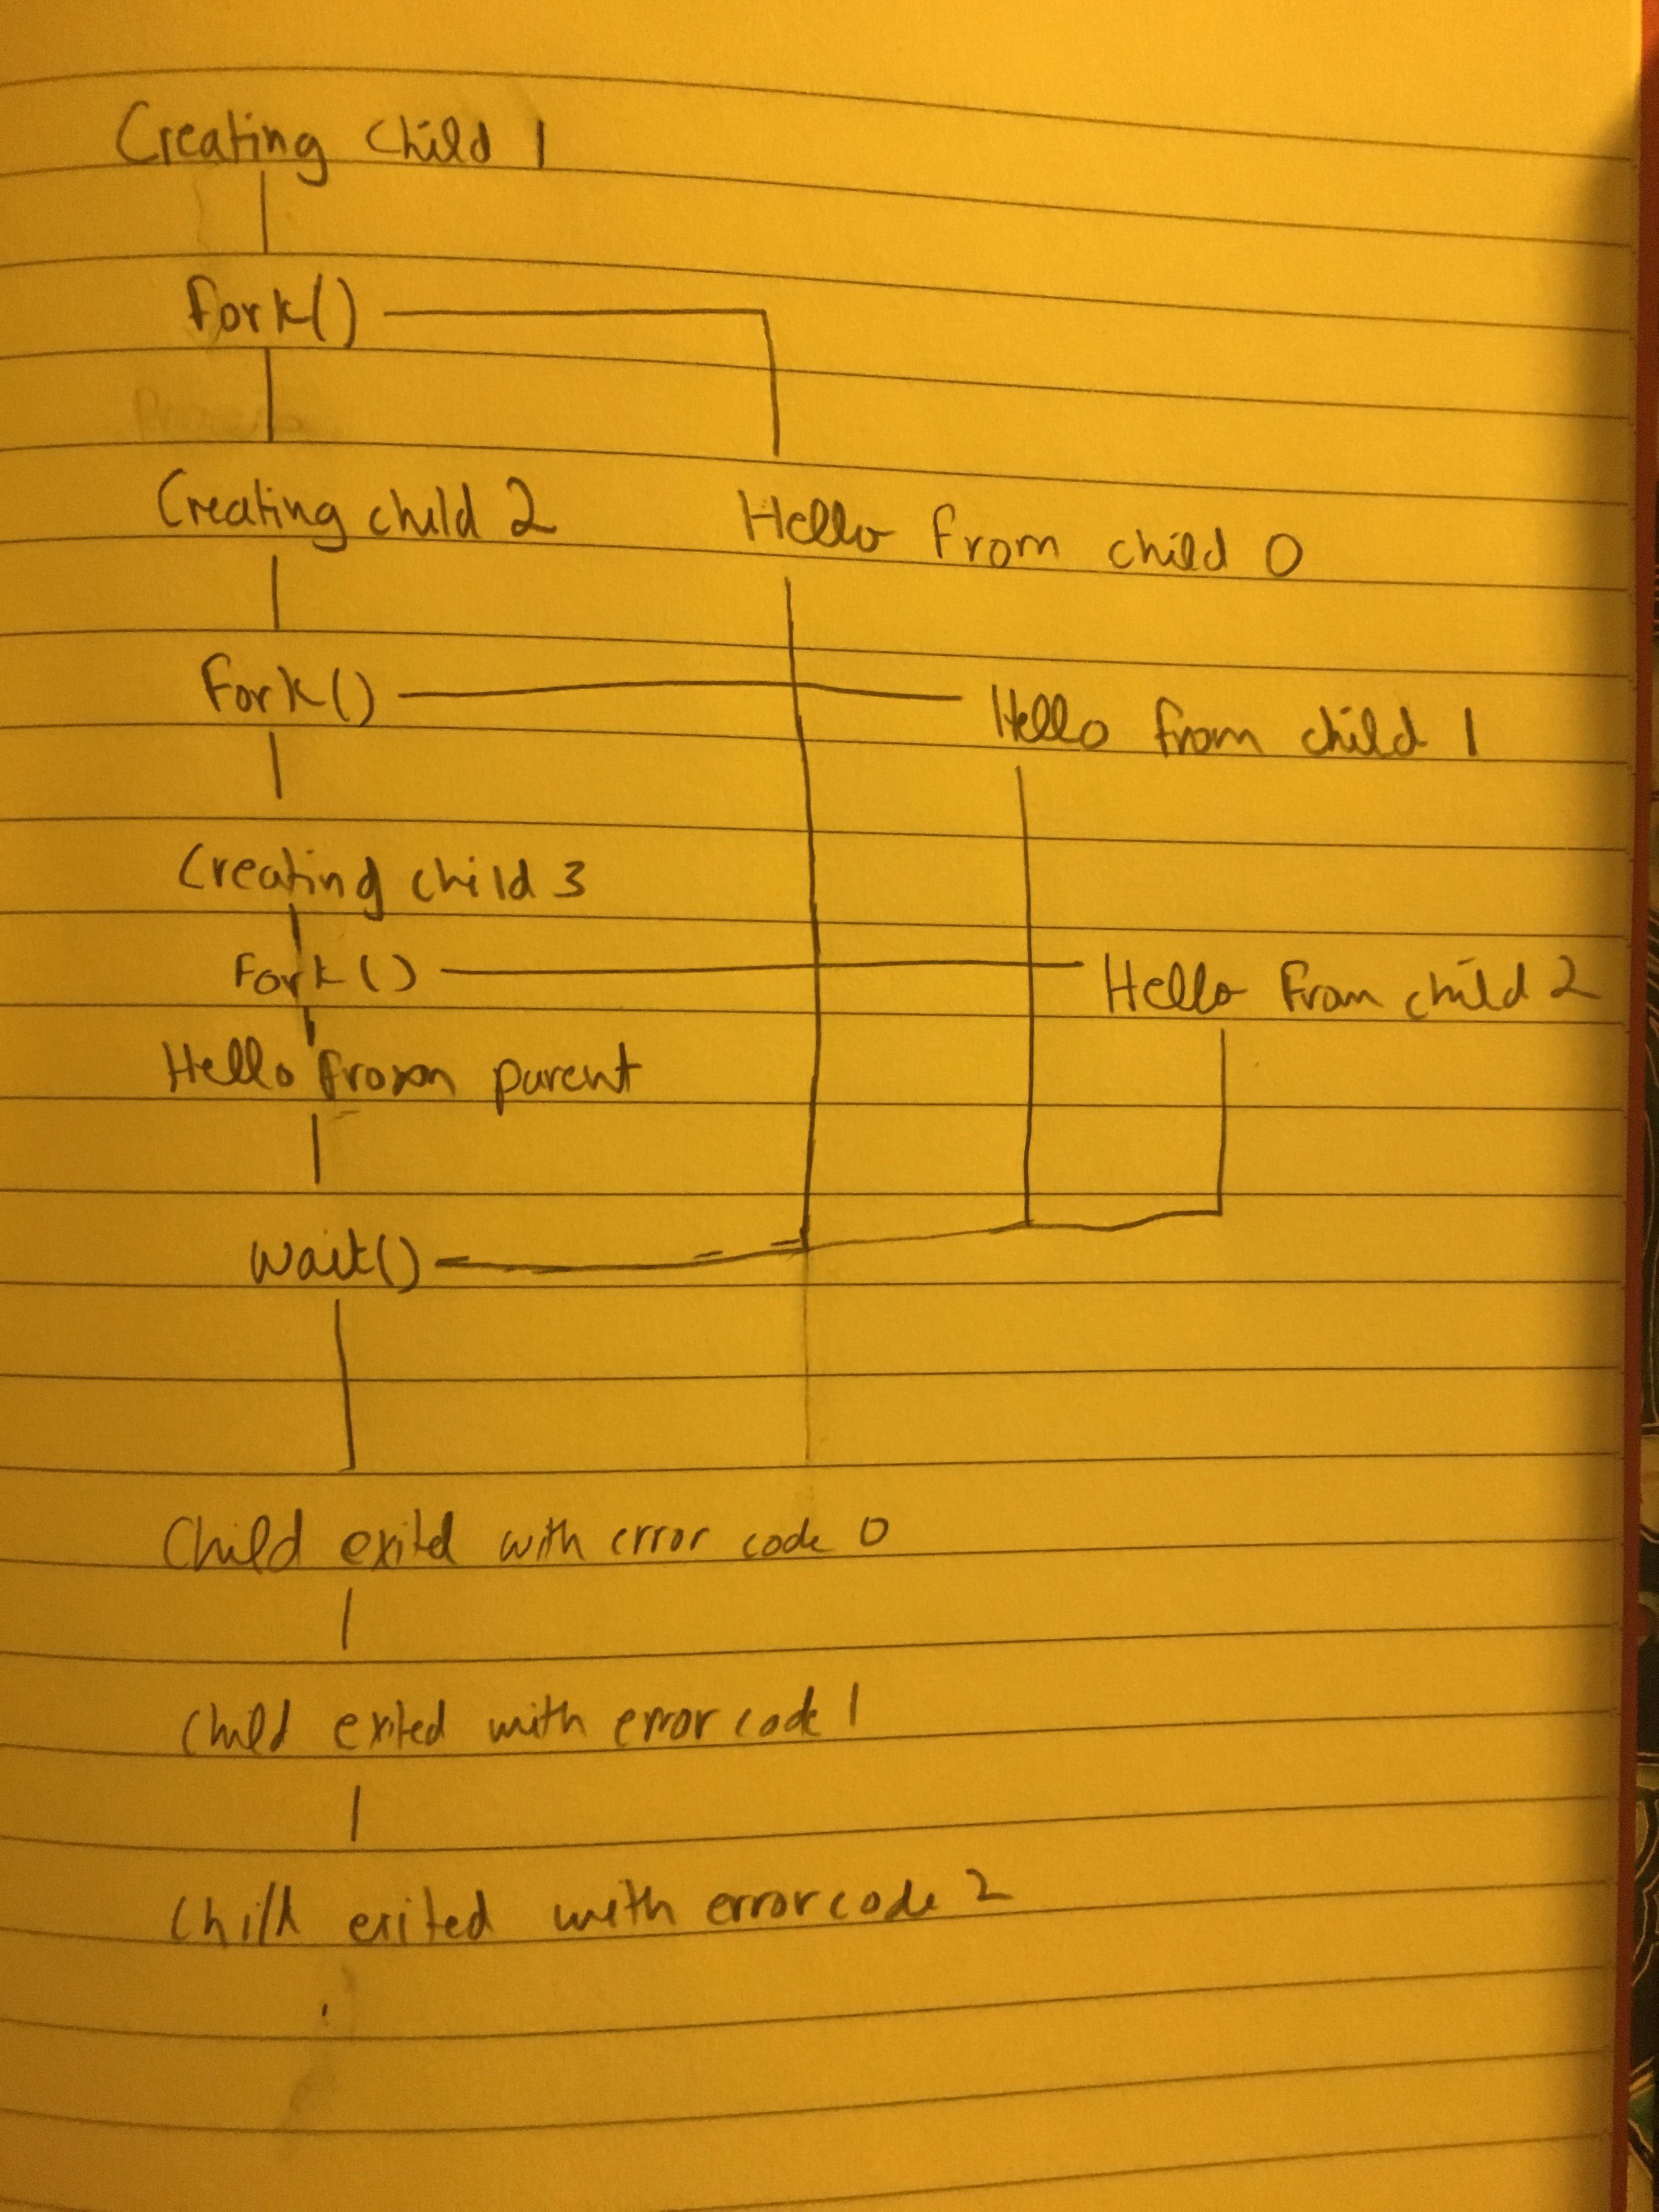 Creating child 1
fork()
Creating child 2
Hello from child 0
fork()
Hello from child 1
Creating child 3
fork()
Hello from child 2
Hello from parent
wait()
Child exited with error code 0
child exited with error code 1
child exited with error code 2